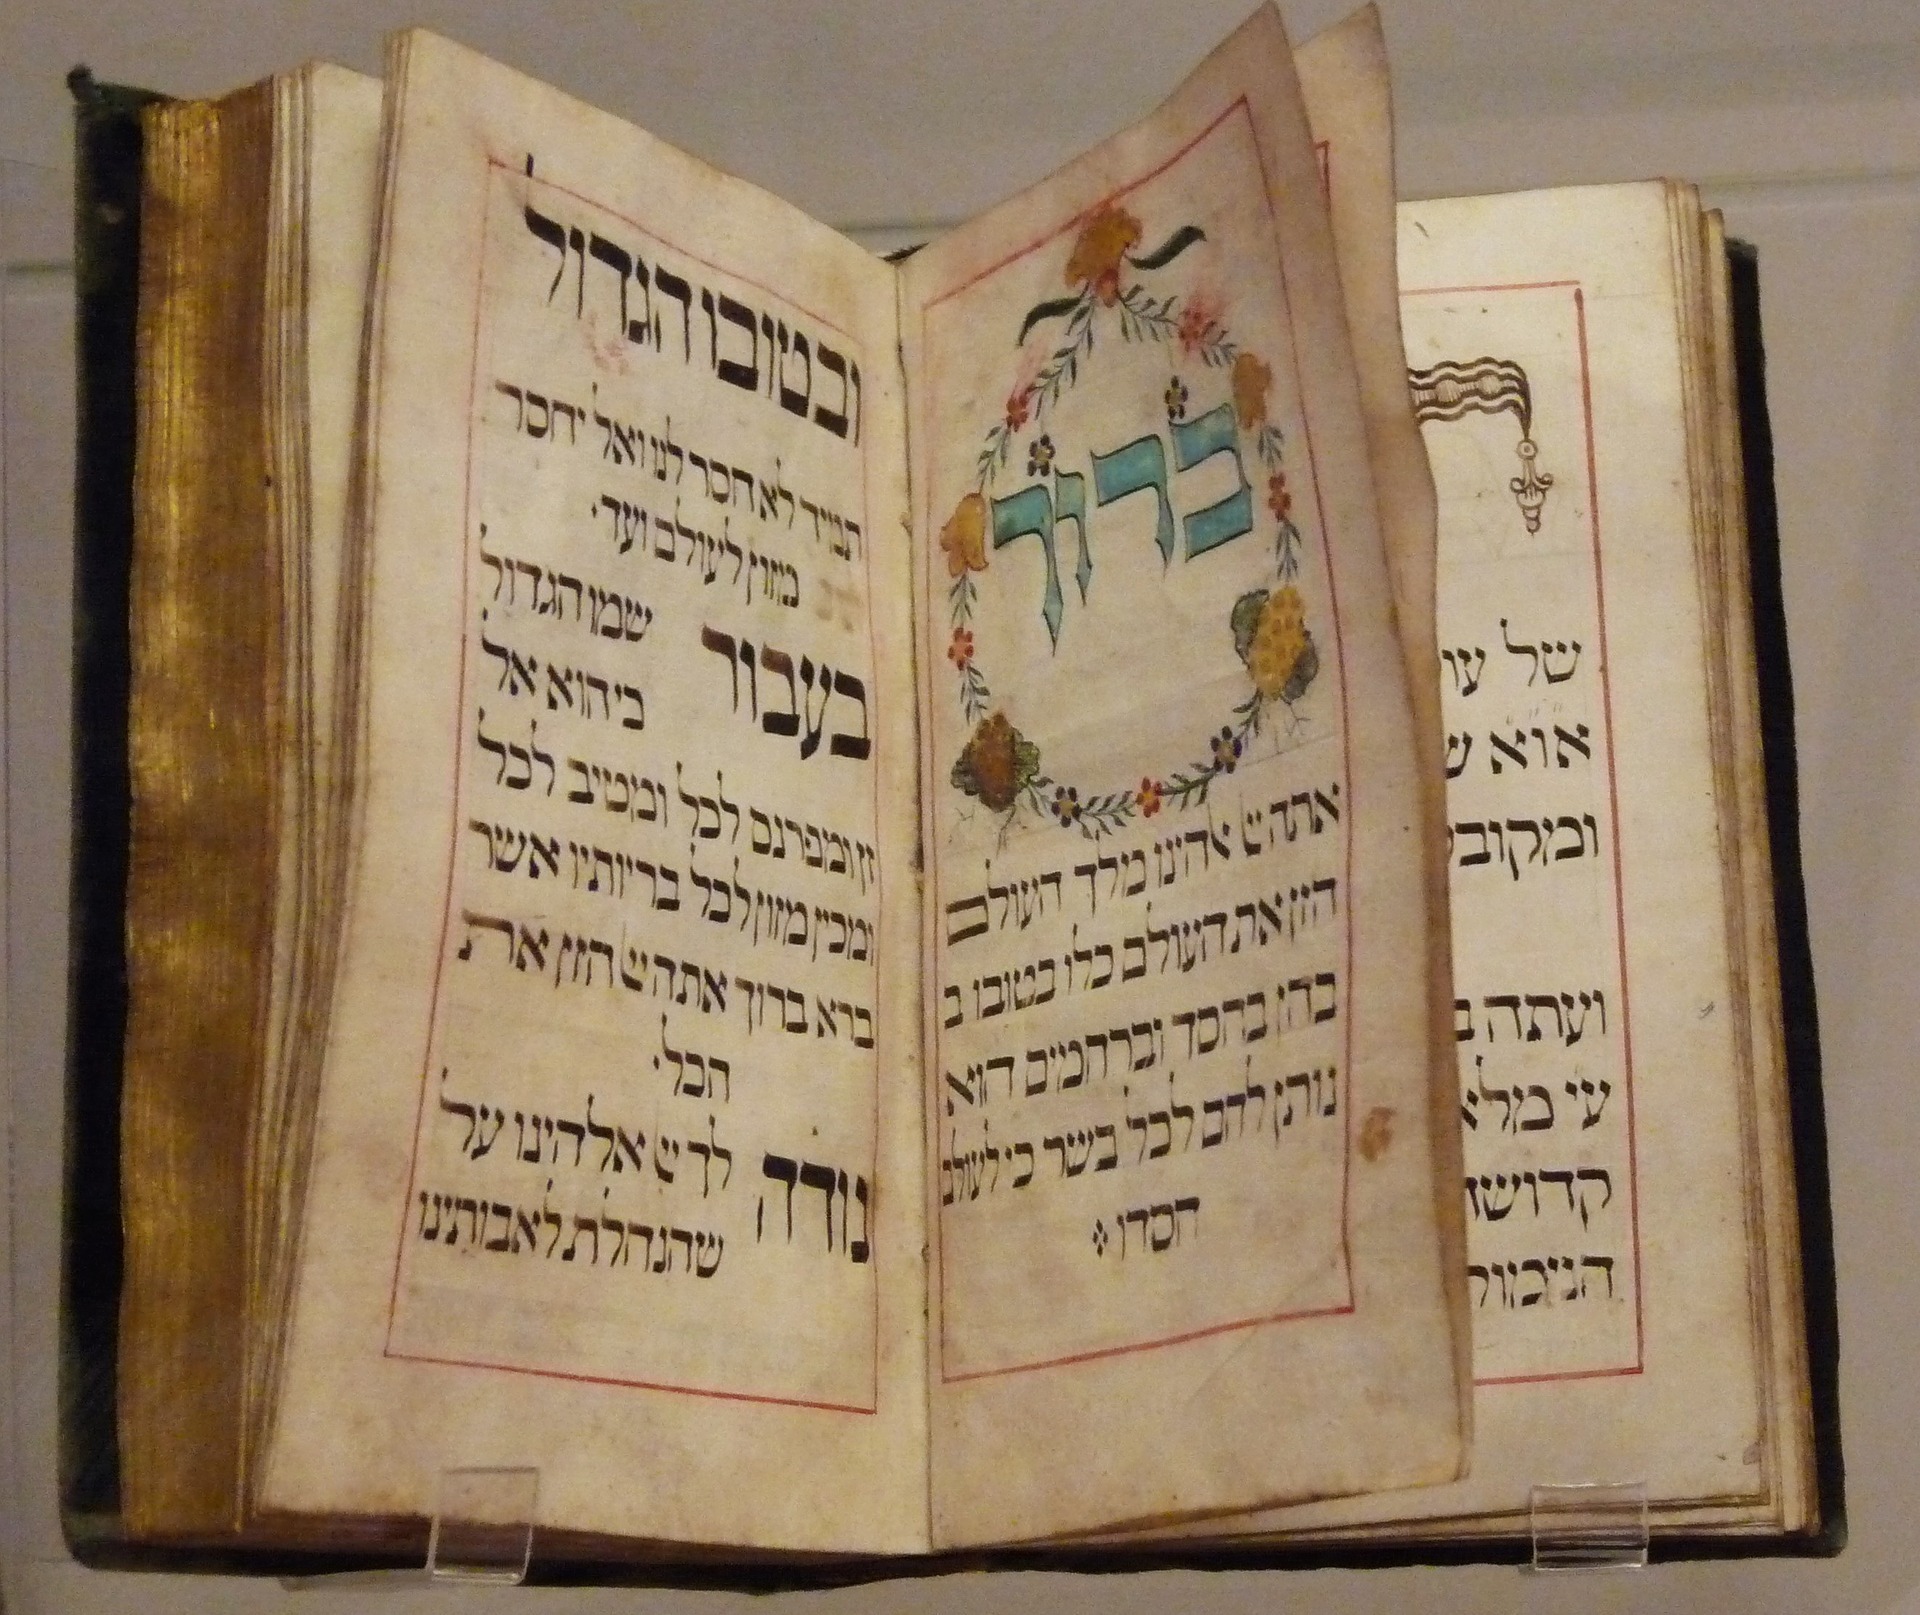 של
אוא
ומקובל
ועתה
עי מלא
קדושה
ברוך
אתה יי אלהינו מלך העולם
הזן את העולם כלו בטובו ב
בחן בחסד וברחמים הוא
נותן לחם לכל בשר כי לעולם
חסדו
ובטובו הגדול
תמיד לא חסר לנו ואל יחסר
מזון לעולם ועד·
בעבור שמו הגדול
כי הוא אל
זן ומפרנס לכל ומטיב לכל
ומכין מזון לכל בריותיו אשר
ברא ברוך אתה יי הזן את
הכל·
נודה לך יי אלהינו על
שהנחלת לאבותינו